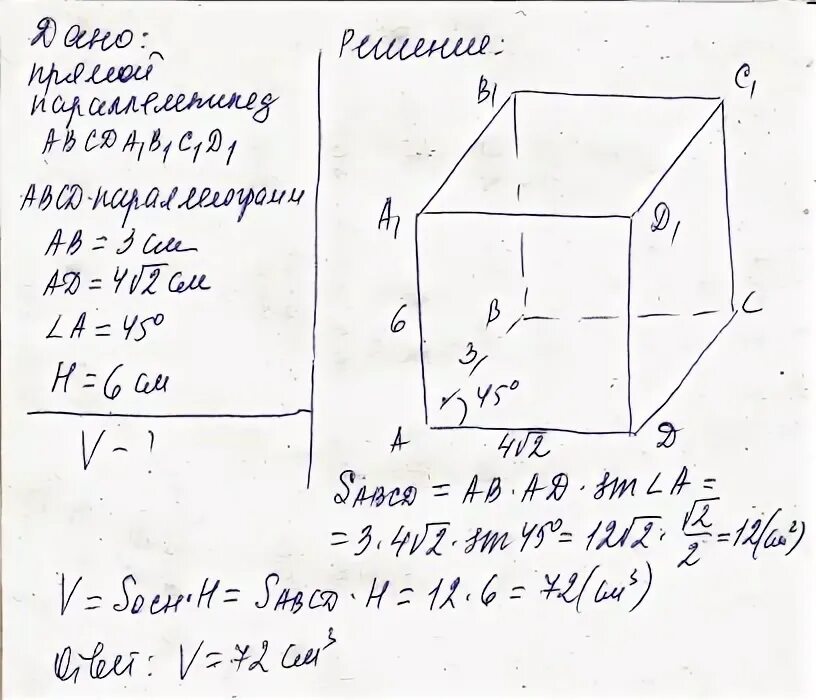 Дано:
прямой
параллелепипед
ABCDA₁B₁C₁D₁
ABCD-параллелограмм
AB = 3 см
AD = 4√2 см
∠A = 45°
H = 6 см
V - ?
Решение:
B₁
C₁
A₁
D₁
6
B
C
3
45°
A
4√2
D
S_ABCD = AB · AD · sin∠A =
= 3 · 4√2 · sin 45° = 12√2 · √2/2 = 12 (см²)
V = Sосн · H = S_ABCD · H = 12 · 6 = 72 (см³)
Ответ: V = 72 см³